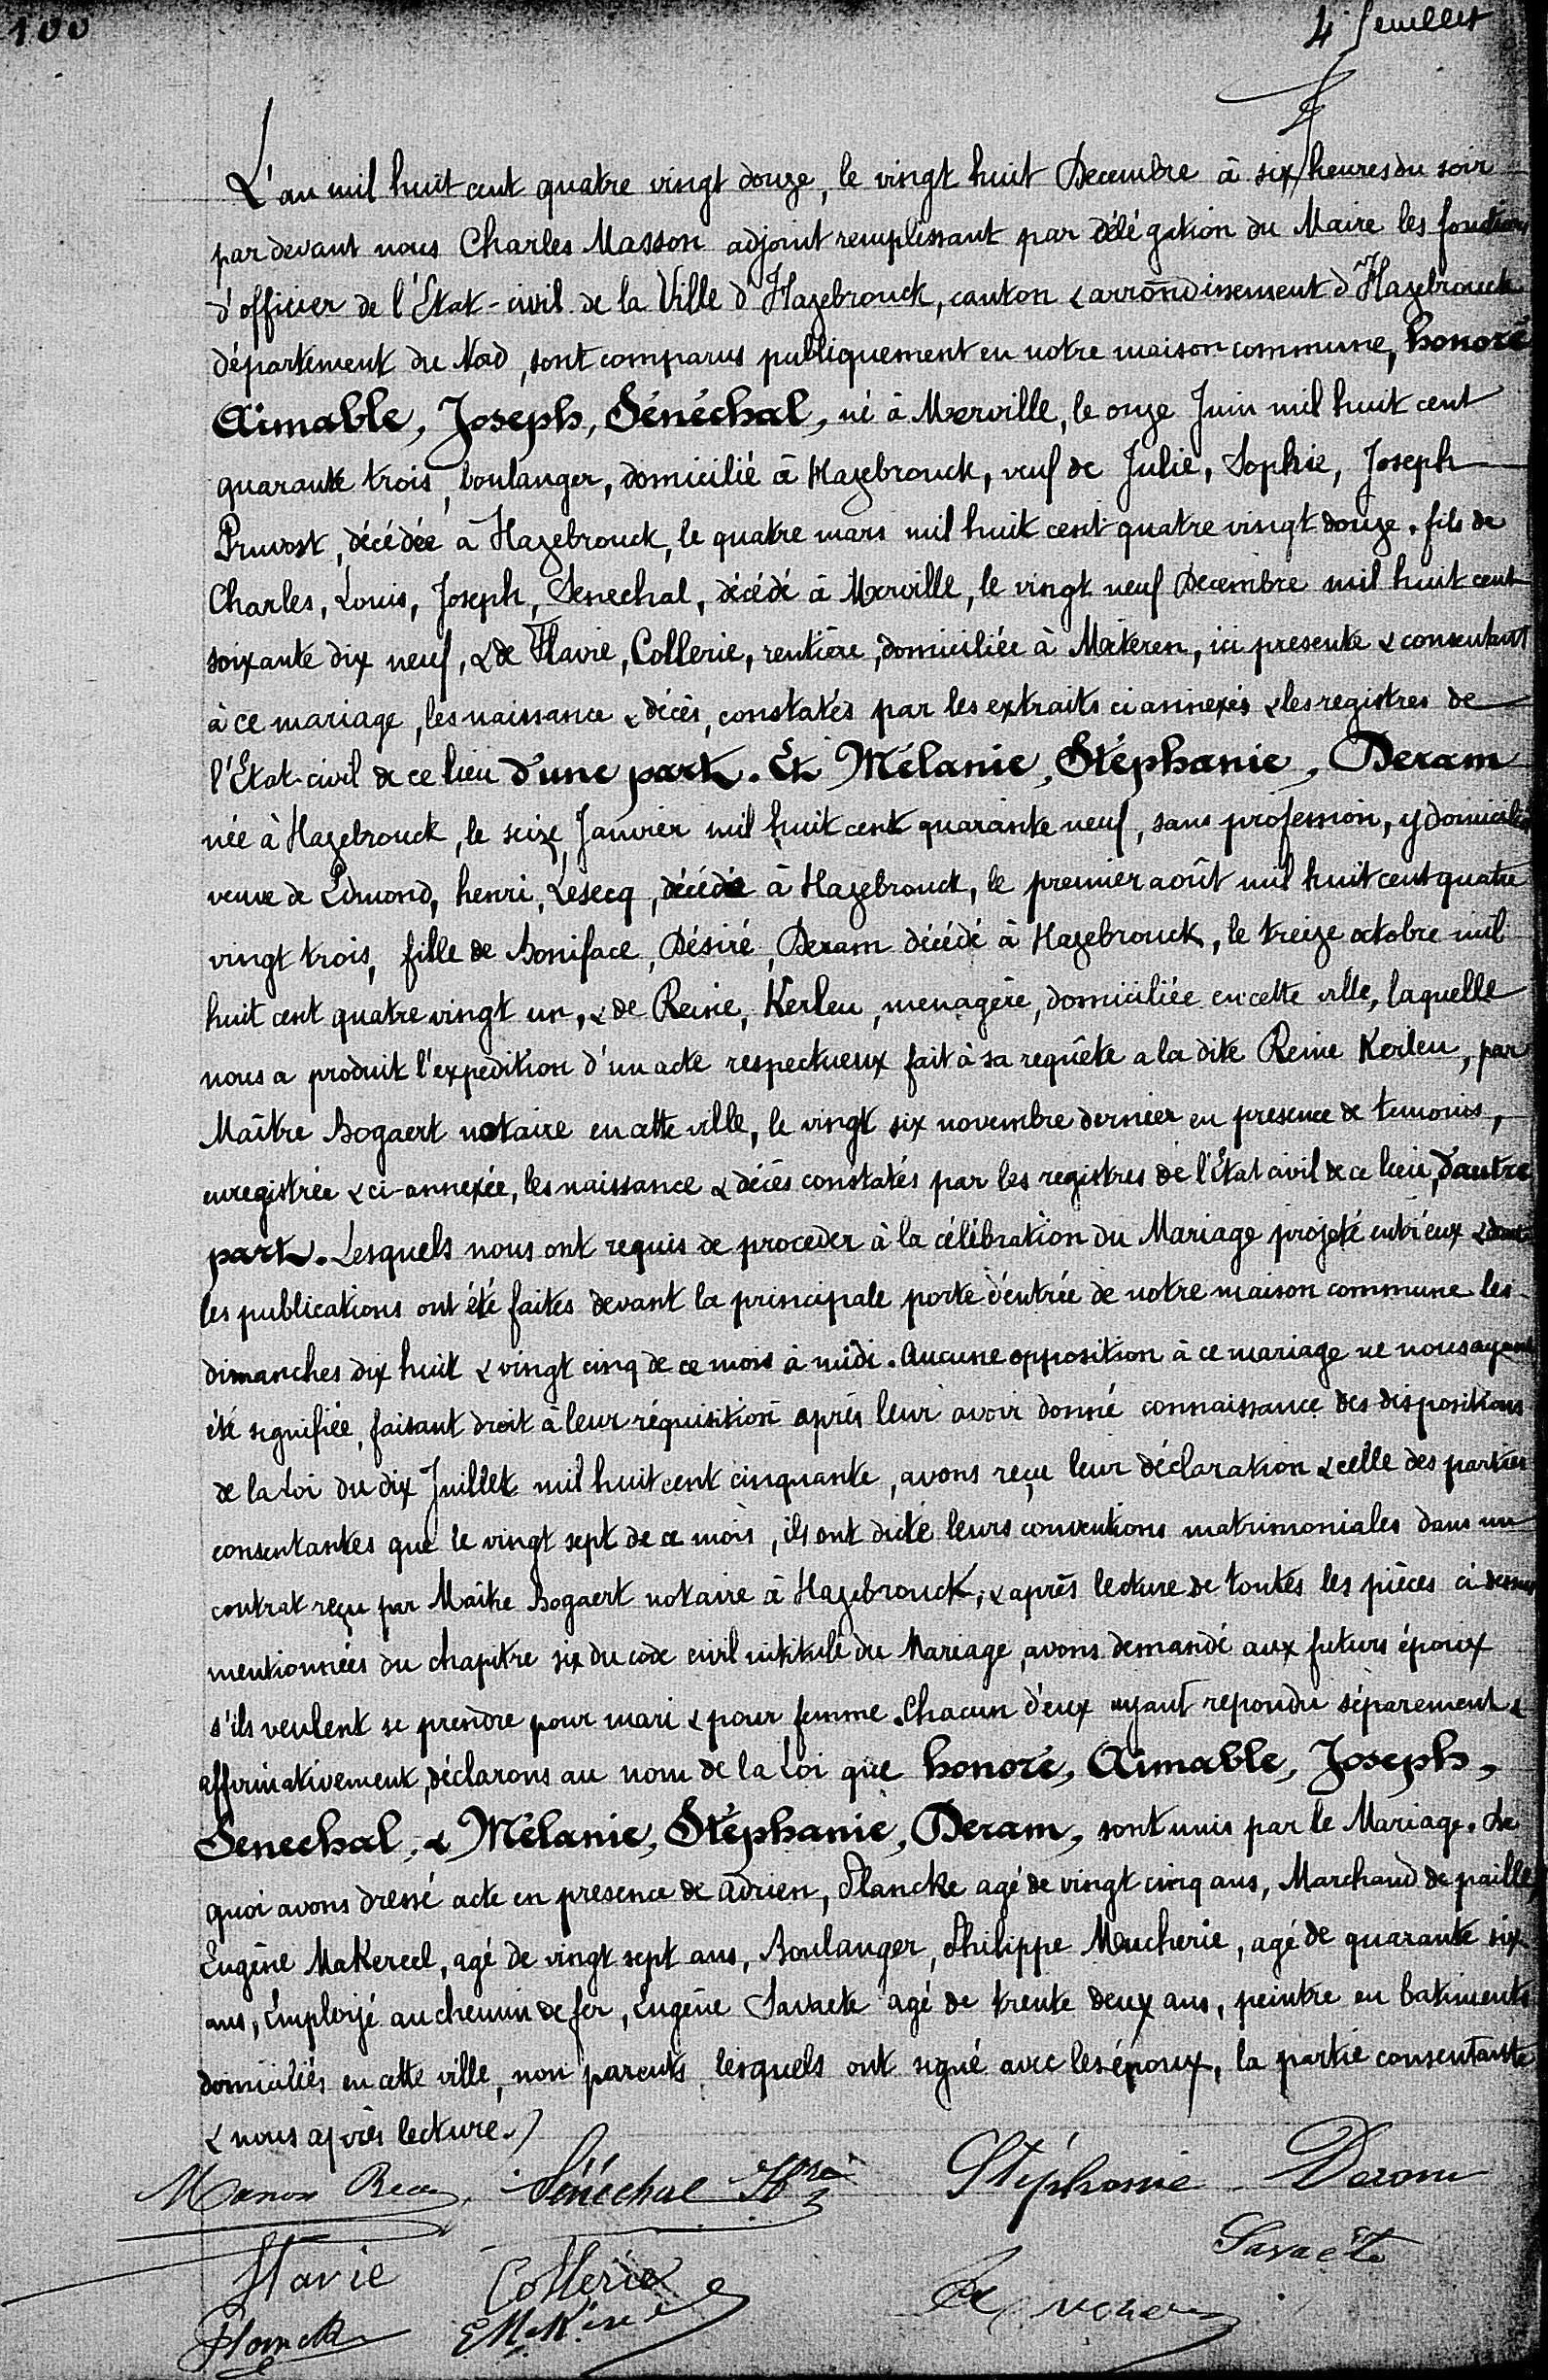 100
4 feuillet
L'an mil huit cent quatre vingt douze, le vingt huit Decembre à six heures du soir
par devant nous Charles Masson adjoint remplissant par délégation du Maire les fonctions
d'officier de l'Etat-civil de la Ville d'Hazebrouck, canton & arrondissement d'Hazebrouck
département du Nord, sont comparus publiquement en notre maison commune, honoré
Aimable, Joseph, Sénéchal, né à Merville, le onze Juin mil huit cent
quarante trois, boulanger, domicilié à Hazebrouck, veuf de Julie, Sophie, Joseph
Pruvost, décédée à Hazebrouck, le quatre mars mil huit cent quatre vingt douze, fils de
Charles, Louis, Joseph, Senechal, décédé à Merville, le vingt neuf Decembre mil huit cent
soixante dix neuf, & de Flavie, Collerie, rentière, domiciliée à Méteren, ici presente & consentant
à ce mariage, les naissance & décès, constatés par les extraits ci annexés & les registres de
l'Etat-civil de ce lieu d'une part. Et Mélanie, Stéphanie, Deram
née à Hazebrouck, le seize Janvier mil huit cent quarante neuf, sans profession, y domiciliée
veuve de Edmond, henri, Lesecq, décédé à Hazebrouck, le premier août mil huit cent quatre
vingt trois, fille de Boniface, Désiré, Deram décédé à Hazebrouck, le treize octobre mil
huit cent quatre vingt un, & de Reine, Kerleu, menagère, domiciliée en cette ville, laquelle
nous a produit l'expedition d'un acte respectueux fait à sa requête a la dite Reine Kerleu, par
Maître Bogaert notaire en cette ville, le vingt six novembre dernier en presence de temoins,
enregistrée & ci-annexée, les naissance & décès constatés par les registres de l'Etat civil de ce lieu, d'autre
part. Lesquels nous ont requis de proceder à la célébration du Mariage projeté entr'eux & dont
les publications ont été faites devant la principale porte d'entrée de notre maison commune les
dimanches dix huit & vingt cinq de ce mois à midi. Aucune opposition à ce mariage ne nous ayant
été signifiée, faisant droit à leur réquisition après leur avoir donné connaissance des dispositions
de la Loi du dix Juillet mil huit cent cinquante, avons reçu leur déclaration & celle des parties
consentantes que le vingt sept de ce mois, ils ont dicté leurs conventions matrimoniales dans un
contrat reçu par Maître Bogaert notaire à Hazebrouck, & après lecture de toutes les pièces ci dessus
mentionnées du chapitre six du code civil intitulé du Mariage, avons demandé aux futurs époux
s'ils veulent se prendre pour mari & pour femme. Chacun d'eux ayant repondu séparement &
affirmativement, déclarons au nom de la Loi que honoré, Aimable, Joseph,
Senechal, & Mélanie, Stéphanie, Deram, sont unis par le Mariage. de
quoi avons dressé acte en presence de Adrien, Plancke agé de vingt cinq ans, Marchand de paille,
Eugène Makereel, agé de vingt sept ans, Boulanger, Philippe Moucherie, agé de quarante six
ans, Employé au chemin de fer, Eugène Savaete agé de trente deux ans, peintre en batiments
domiciliés en cette ville, non parents lesquels ont signé avec les époux, la partie consentante
& nous après lecture.
Sénéchal Stéphanie Deram
Savaëte
Flavie Collerie
Plancke